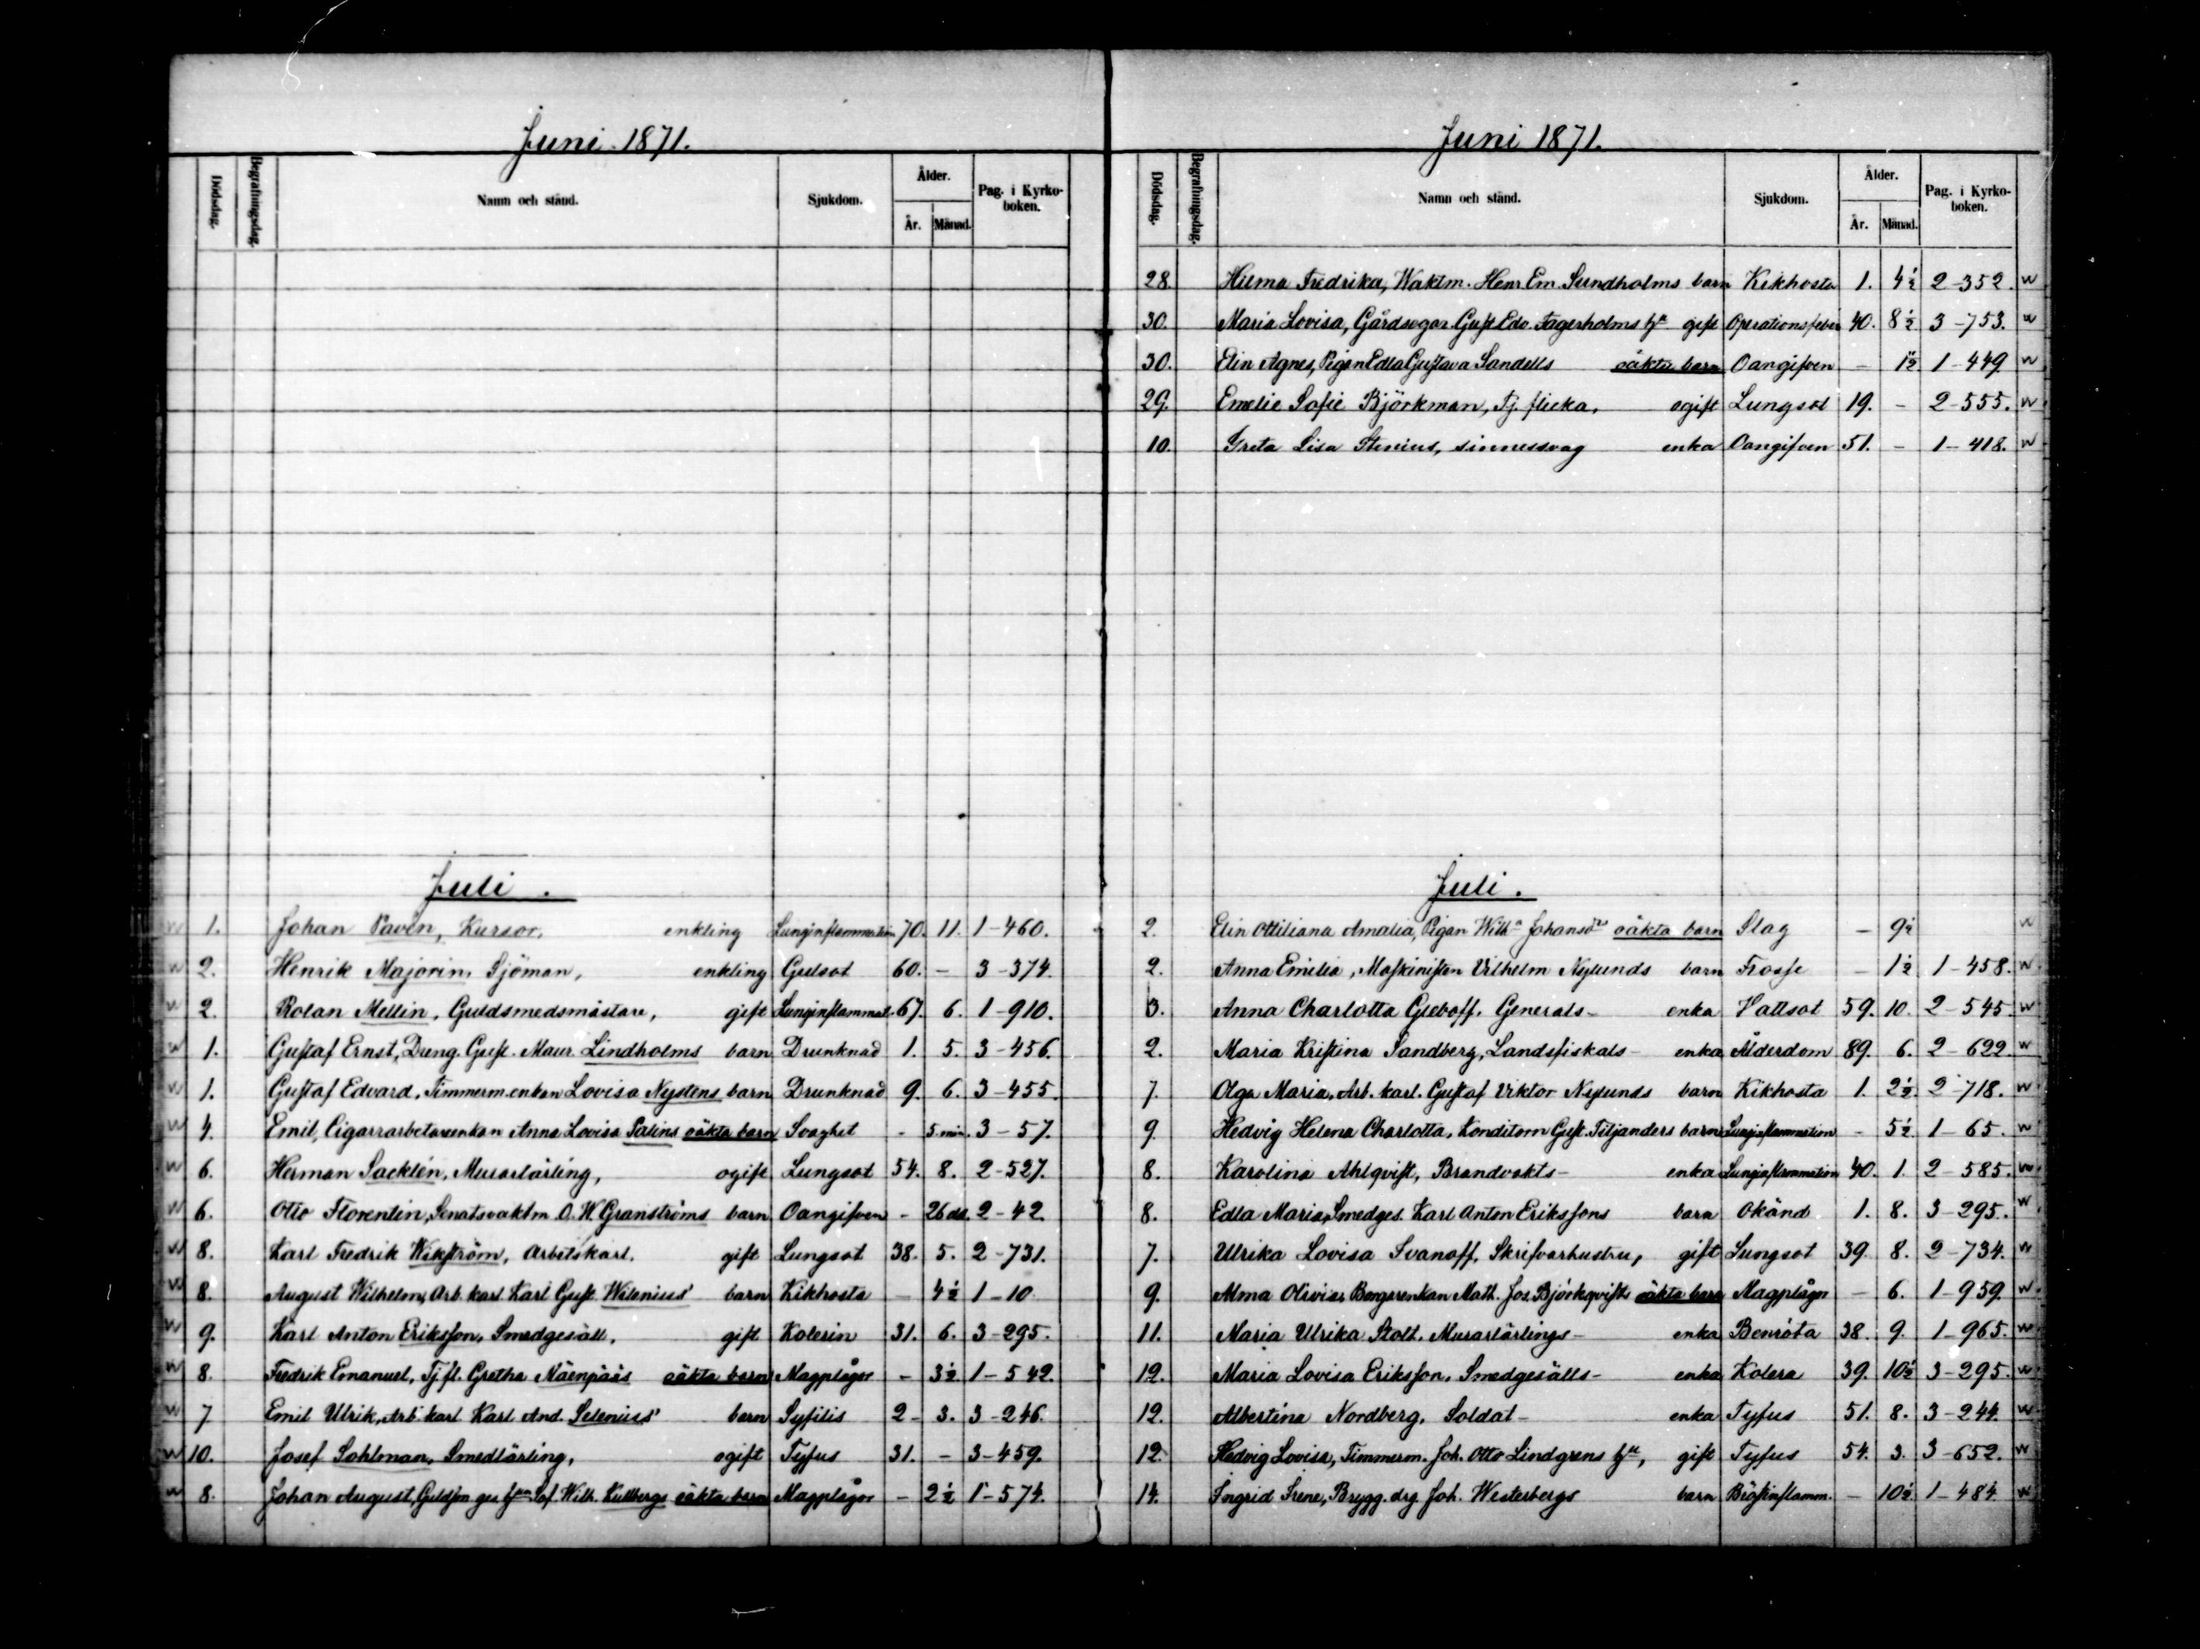 Juni 1871.
Dödsdag. Begrafningsdag. Namn och stånd. Sjukdom. Ålder. År. Månad. Pag. i Kyrko-boken.
Juli.
w 1. Johan Pavén, Kursor, enkling Lunginflammation 70. 11. 1-460.
w 2. Henrik Majorin, Sjöman, enkling Gulsot 60. - 3-374.
w 2. Rolan Mellin, Guldsmedsmästare, gift Lunginflammat. 67. 6. 1-910.
w 1. Gustaf Ernst, Dreng. Gust. Maur. Lindholms barn Drunknad 1. 5. 3-456.
w 1. Gustaf Edvard, Timmerm. enkan Lovisa Nystens barn Drunknad 9. 6. 3-455.
w 4. Emil, Cigarrarbetareenkan Anna Lovisa Palins oäkta barn Svaghet - 5 min. 3-57.
w 6. Herman Sacklén, Murarlärling, ogift Lungsot 54. 8. 2-527.
w 6. Otto Florentin, Senatsvaktm. O. W. Granströms barn Oangifven - 26 da. 2-42.
w 8. Karl Fredrik Wikström, Arbetskarl, gift Lungsot 38. 5. 2-731.
w 8. August Wilhelm, Arb. karl Karl Gust. Wilenius' barn Kikhosta - 4½ 1-10
w 9. Karl Anton Eriksson, Smedgesäll, gift Kolerin 31. 6. 3-295.
w 8. Fredrik Emanuel, Tj. fl. Gretha Näenpääs oäkta barn Magplågor - 3½ 1-542.
w 7 Emil Ulrik, Arb. karl Karl And. Selenius' barn Syfilis 2- 3. 3-246.
w 10. Josef Sohlman, Smedlärling, ogift Tyfus 31. - 3-459.
w 8. Johan August, Guldsm. ges. Sof. Wilh. Kullbergs oäkta barn Magplågor - 2½ 1-574.
Juni 1871.
Dödsdag. Begrafningsdag. Namn och stånd. Sjukdom. Ålder. År. Månad. Pag. i Kyrko-boken.
28. Hilma Fredrika, Waktm. Henr. Em. Sundholms barn Kikhosta 1. 4½ 2-352. w
30. Maria Lovisa, Gårdsegar. Gust. Edv. Fagerholms hu gift Operationsfeber 40. 8½ 3-753. w
30. Elin Agnes, Pigan Edla Gustava Sandells oäkta barn Oangifven - 1½ 1-449 w
29. Emelie Sofie Björkman, Tj. flicka, ogift Lungsot 19. - 2-555. w
10. Greta Lisa Stenius, sinnessvag enka Oangifven 51. - 1-418. w
Juli.
2. Elin Ottiliana Amalia, Pigan Wilh:a Johansd:rs oäkta barn Slag - 9½ w
2. Anna Emilia, Maskinisten Vilhelm Nylunds barn Trosse - 1½ 1-458. w
3. Anna Charlotta Gleboff, Generals- enka Vattsot 59. 10. 2-545 w
2. Maria Kristina Sandberg, Landsfiskals- enka Ålderdom 89. 6. 2-622. w
7. Olga Maria, Arb. karl. Gustaf Viktor Nylunds barn Kikhosta 1. 2½ 2-718. w
9. Hedvig Helena Charlotta, Konditorn Gust. Tiljanders barn Lunginflammation - 5½ 1-65. w
8. Karolina Ahlqvist, Brandvakts- enka Lunginflammation 40. 1. 2-585. w
8. Edla Maria, Smedges. Karl Anton Erikssons barn Okänd 1. 8. 3-295. w
7. Ulrika Lovisa Ivanoff, Skrifvarhustru, gift Lungsot 39. 8. 2-734. w
9. Alma Olivia, Borgarenkan Math. Jos. Björkqvists oäkta barn Magplågor - 6. 1-959. w
11. Maria Ulrika Stolt, Murarlärlings- enka Benröta 38. 9. 1-965. w
12. Maria Lovisa Eriksson, Smedgesälls- enka Kolera 39. 10½ 3-295. w
12. Albertina Nordberg, Soldat- enka Tyfus 51. 8. 3-244. w
12. Hedvig Lovisa, Timmerm. Joh. Otto Lindgrens hu, gift Tyfus 54. 3. 3-652. w
14. Ingrid Irene, Brygg. drg Joh. Westerbergs barn Bröstinflamm. - 10½ 1-484 w